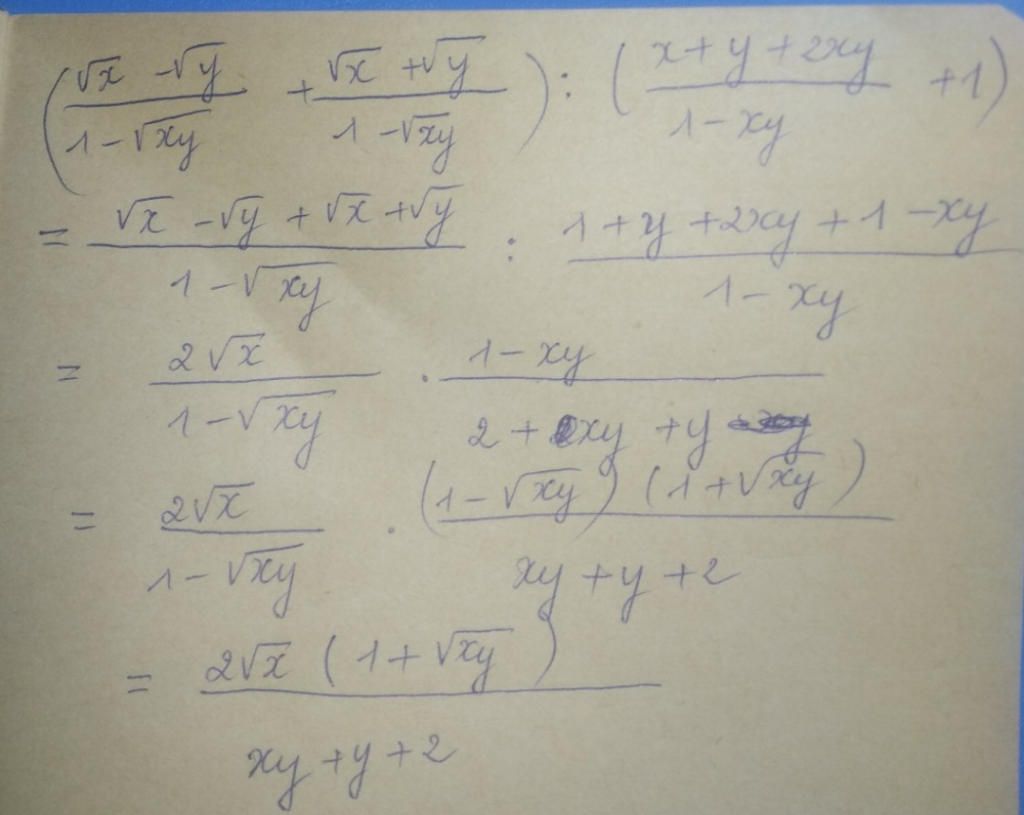 (√x - √y / 1 - √xy + √x + √y / 1 - √xy) : (x + y + 2xy / 1 - xy + 1)
= √x - √y + √x + √y / 1 - √xy : 1 + y + 2xy + 1 - xy / 1 - xy
= 2√x / 1 - √xy . 1 - xy / 2 + xy + y
= 2√x / 1 - √xy . (1 - √xy) (1 + √xy) / xy + y + 2
= 2√x (1 + √xy) / xy + y + 2